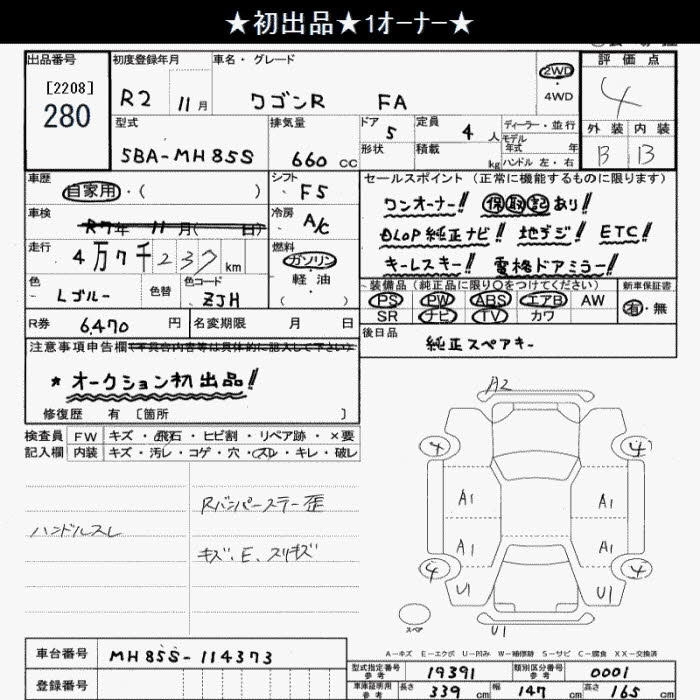 ★初出品★1オーナー★
出品番号
[2208]
280
初度登録年月
R2 11月
車名・グレード
ワゴンR FA
2WD
4WD
評価点
4
外装 内装
B B
型式
5BA-MH85S
排気量
660 cc
ドア 5
形状
定員 4 人
積載 kg
ディーラー・並行
モデル年式 年
ハンドル 左・右
車歴
自家用・( )
シフト
F5
車検
R7年 11月( 日)
冷房
A/C
走行
4万7千237km
燃料
ガソリン
軽油
( )
色
Lブルー
色替
色コード
ZJH
R券 6,470 円
名変期限 月 日
セールスポイント (正常に機能するものに限ります)
ワンオーナー!! 保取記あり!!
8LOP純正ナビ!! 地デジ!! ETC!!
キーレスキー!! 電格ドアミラー!!
装備品(純正品に限り○をつけてください)
PS PW ABS エアB AW
SR ナビ TV カワ
新車保証書
有・無
後日品
純正スペアキー
注意事項申告欄(不具合内容等は具体的に記入して下さい)
* オークション初出品!!
修復歴 有 [箇所 ]
検査員 FW キズ・飛石・ヒビ割・リペア跡・×要
記入欄 内装 キズ・汚レ・コゲ・穴・スレ・キレ・破レ
Rバンパーステー歪
ハンドルスレ
キズ、E、スリキズ
A2
4 4
A1 A1
A1 A1
4 4
U1 U1
スペア
U1
A-キズ E-エクボ U-凹み W-補修跡 S-サビ C-腐食 XX-交換済
車台番号 MH85S-114373
登録番号
型式指定番号 参考 19391
類別区分番号 参考 0001
車庫証明用 参考 長さ 339 cm 幅 147 cm 高さ 165 cm